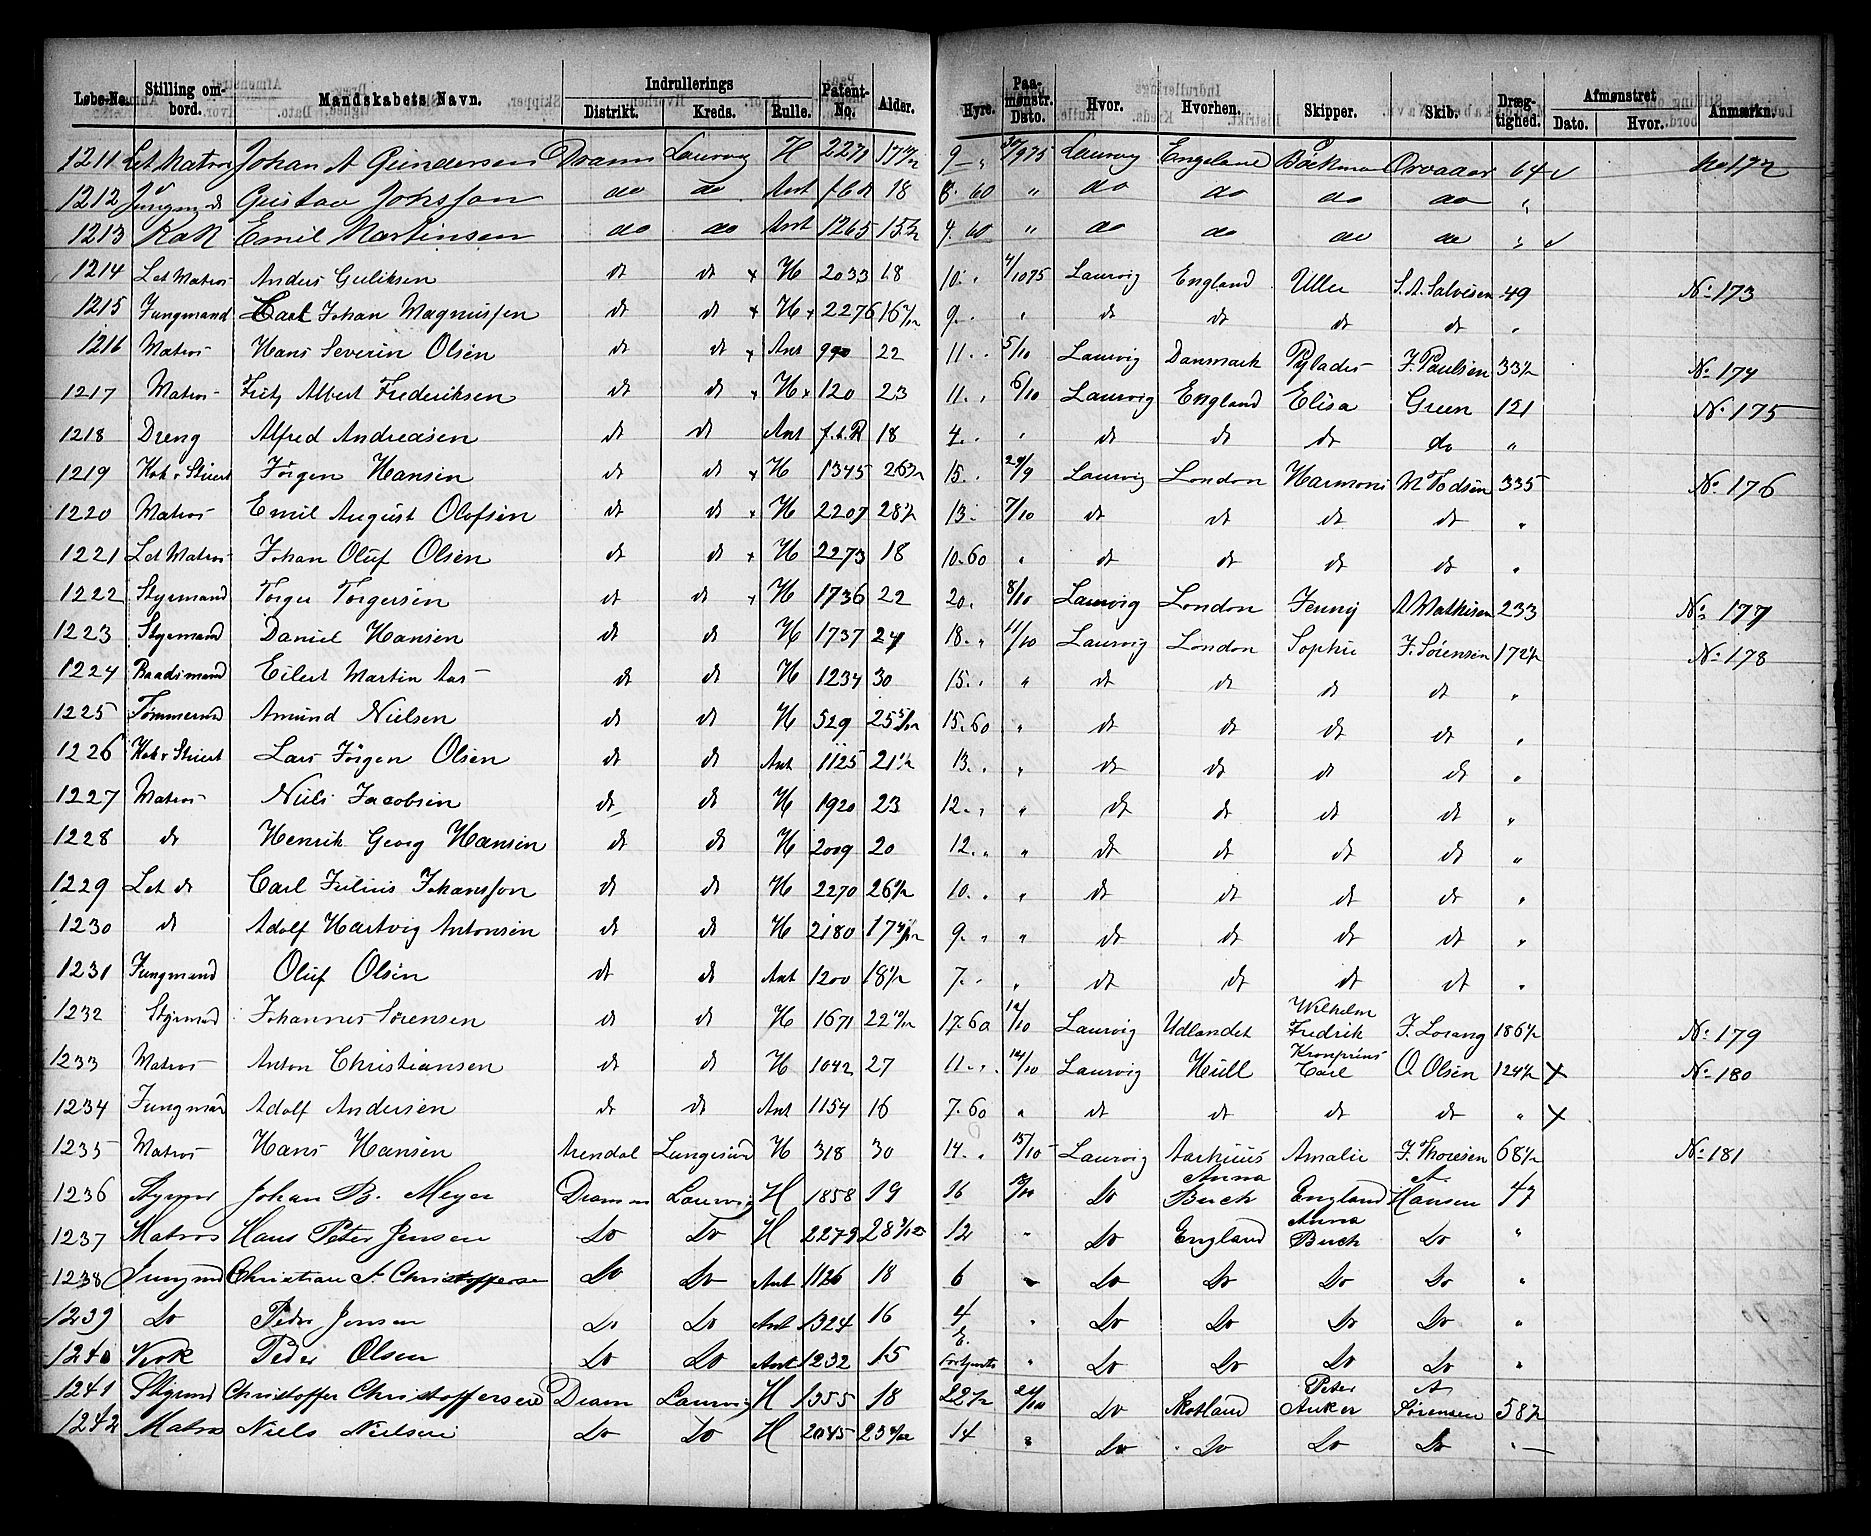 Løbe-No. Stilling ombord. Mandskabets Navn. Indrullerings Distrikt. Kreds. Rulle. Patent-No. Alder. Hyre. Paamønstr. Dato. Hvor. Hvorhen. Skipper. Skib. Drægtighed. Afmønstret Dato. Hvor. Anmærkn.
1211 Let Matros Johan A Gundersen Dramm Laurvig H 2271 9 - " 30/9 75 Laurvig England Orvaaar 64 No 172
1212 Jungmd Gustav Johsson do do Ant f.b.R 18 8. 60 " do do do do "
1213 Kok Emil Martinsen do do Ant 1265 9. 60 " do do do do "
1214 Let Matros Anders Guliksen dt dt x H 2033 18 10. . 4/10 75 Laurvig England Ulle S. A. Salvesen 49 No 173
1215 Jungmand Carl Johan Magnussen dt dt x H x 2276 9. . " dt dt dt dt "
1216 Matros Hans Severin Olsen dt dt x Ant 990 22 11. . 5/10 Laurvig Danmark Pylades J. Paulsen 33½ No 174
1217 Matros Fritz Albert Frederiksen dt dt x H x 120 23 11. . 6/10 Laurvig England Elisa Green 121 No 175
1218 Dreng Alfred Andreasen dt dt Ant f.b.R 18 4. . " dt dt dt do "
1219 Kok & Stuert Jørgen Hansen dt dt x H 1345 15. . 29/9 Laurvig London Harmoni M Todsen 335 No 176
1220 Matros Emil August Olofsen dt dt x H 2207 28½ 13. 7/10 dt dt dt dt "
1221 Let Matros Johan Oluf Olsen dt dt x H 2273 18 10. 60 " dt dt dt dt "
1222 Styrmand Torger Torgersen dt dt x H 1736 22 20. 8/10 Laurvig London Jenny A Mathisen 233 No 177
1223 Styrmand Daniel Hansen dt dt H 1737 24 18. " 11/10 Laurvig London Sophie J. Sørensen 172½ No 178
1224 Baadsmand Eilert Martin Aas dt dt H 1234 30 15. . " dt dt dt dt "
1225 Tømmermd Amund Nielsen dt dt H 529 25 5/12 15. 60 " dt dt dt dt "
1226 Kok & Stuert Lars Jørgen Olsen dt dt Ant 1125 21½ 13. . " dt dt dt dt "
1227 Matros Niels Jacobsen dt dt H 1920 23 12. . " dt dt dt dt "
1228 dt Henrik Georg Hansen dt dt H 2009 20 12. . " dt dt dt dt "
1229 Let dt Carl Julius Johansson dt dt H 2270 26½ 10. . " dt dt dt dt "
1230 dt Adolf Hartvig Antonsen dt dt H 2180 9. . " dt dt dt dt "
1231 Jungmand Oluf Olsen dt dt Ant 1200 18½ 7. . " dt dt dt dt "
1232 Styrmand Johannes Sørensen dt dt H 1671 17. 60 12/10 Laurvig Udlandet Wilhelm Fredrik J. Lorang 186½ No 179
1233 Matros Anton Christiansen dt dt H 1042 27 11. . 14/10 Laurvig Hull Kronprins Carl O Olsen 124½ x No 180
1234 Jungmand Adolf Andersen dt dt Ant 1154 16 7. 60 " dt dt dt dt " x
1235 Matros Hans Hansen Arendal H 318 30 14. . 15/10 Laurvig Aarhuus Amalie J. Thoresen 68½ No 181
1236 Styrmd Johan B. Meyer Drammn Laurvig H 1858 19 16 Do Anna Buch England A. Hansen 47
1237 Matros Hans Peter Jensen Do Do H 2279 12 " Do England Anna Buch Do "
1238 Jungmd Christian A Christoffersen Do Do Ant 1126 18 6 " Do Do Do Do "
1239 Do Peder Jensen Do Do Ant 1324 16 4 " Do Do Do Do "
1240 Kok Peder Olsen Do Do Ant 1232 15 E. fortjeneste " Do Do Do Do "
1241 Styrmd Christoffer Christoffersen Dram Laurvig H 1355 18 22½ 21/10 Do Skotland Peter Anker A Sørensen 58½
1242 Matros Niels Nielsen Do Do H 2045 14 " Do Do Do Do "